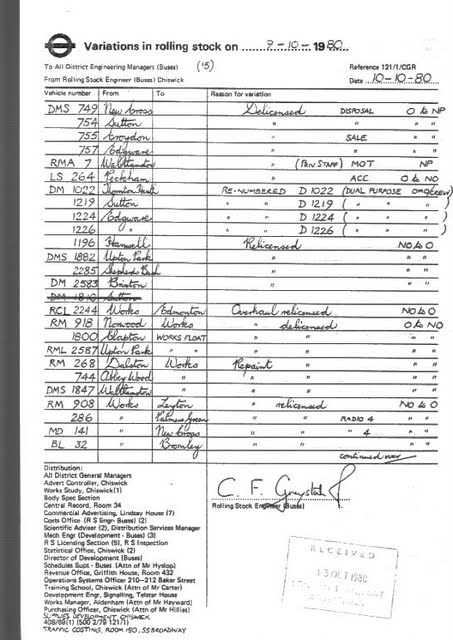 Variations in rolling stock on 9-10-1980
To All District Engineering Managers (Buses) (15) Reference 121/1/CGR
From Rolling Stock Engineer (Buses) Chiswick Date 10-10-80
Vehicle number From To Reason for variation
DMS 749 New Cross Delicensed DISPOSAL O to NP
754 Sutton " " " "
755 Croydon " SALE " "
757 Edgware " " " "
RMA 7 Walthamstow (PRIV. STAFF) MOT NP
LS 264 Peckham " ACC. O to NO
DM 1022 Thornton Heath RE-NUMBERED D 1022 (DUAL PURPOSE OMO/CREW)
1219 Sutton " " D 1219 ( " " " )
1224 Edgware " " D 1224 ( " " " )
1226 " " " D 1226 ( " " " )
1196 Hanwell Relicensed NO to O
DMS 1882 Upton Park " " "
2285 Shepherds Bush " " "
DM 2583 Brixton " " "
DM 1810 Sutton
RCL 2244 Works Edmonton Overhaul relicensed NO to O
RM 918 Norwood Works " delicensed O to NO
1800 Clapton WORKS FLOAT " " " "
RML 2587 Upton Park " " " " " "
RM 268 Dalston Works Repaint " " "
744 Abbey Wood " " " " "
DMS 1847 Walthamstow " " " " "
RM 908 Works Leyton " relicensed NO to O
286 " Palmers Green " " RADIO 4 " "
MD 141 " New Cross " " " 4 " "
BL 32 " Bromley " " " "
continued over
Distribution:
All District General Managers
Advert Controller, Chiswick
Works Study, Chiswick(1)
Body Spec Section
Central Record, Room 34
Commercial Advertising, Lindsay House (7)
Costs Office (R S Engr- Buses) (2)
Scientific Adviser (2), Distribution Services Manager
Mech Engr (Development - Buses) (3)
R S Licensing Section (5), R S Inspection
Statistical Office, Chiswick (2)
Director of Development (Buses)
Schedules Supt - Buses (Attn of Mr Hyslop)
Revenue Office, Griffith House, Room 432
Operations Systems Officer 210-212 Baker Street
Training School, Chiswick (Attn of Mr Carter)
Development Engr, Signalling, Telstar House
Works Manager, Aldenham (Attn of Mr Hayward)
Purchasing Officer, Chiswick (Attn of Mr Hillias)
SUPPLIES DEVELOPMENT CHISWICK
408/89(1) (500 2/79 121/1)
TRAFFIC COSTING, ROOM 150, 55 BROADWAY
C. F.
Rolling Stock Engineer (Buses)
RECEIVED
13 OCT 1980